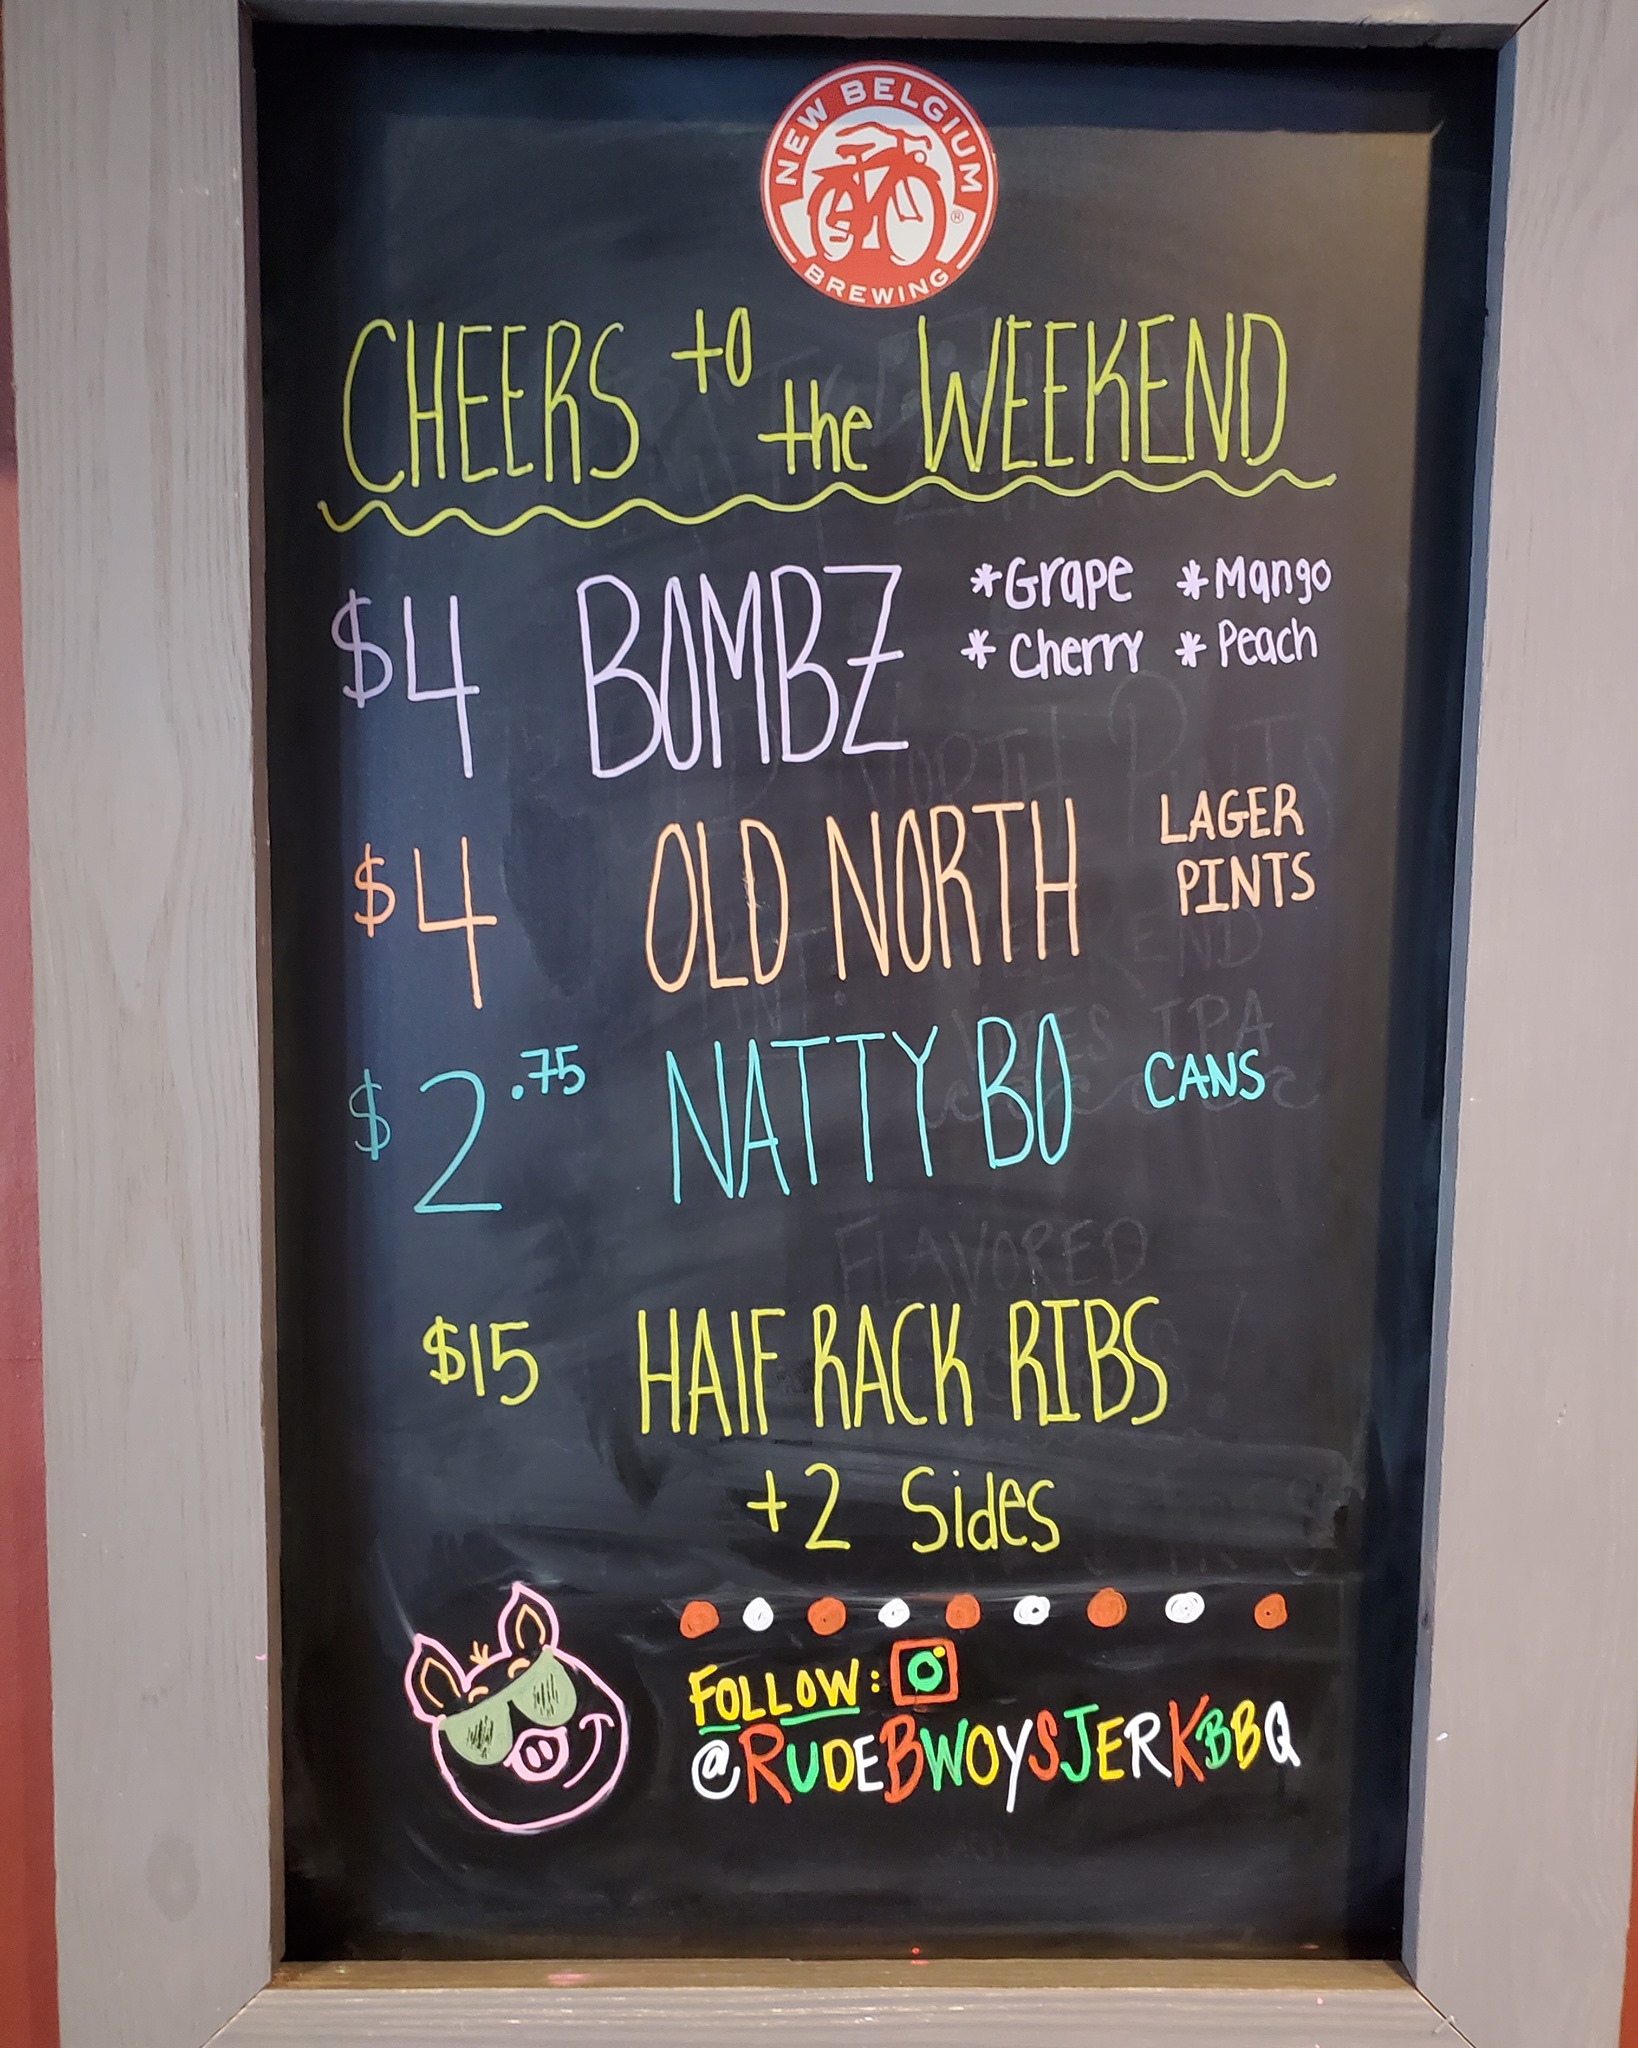 NEW BELGIUM
BREWING
®
CHEERS to the WEEKEND
$4 BOMBZ *Grape *Mango
*Cherry *Peach
$4 OLD NORTH LAGER
PINTS
$2.75 NATTY BO CANS
FLAVORED
$15 HALF RACK RIBS
+2 Sides
FOLLOW:
@RUDEBWOYSJERKBBQ